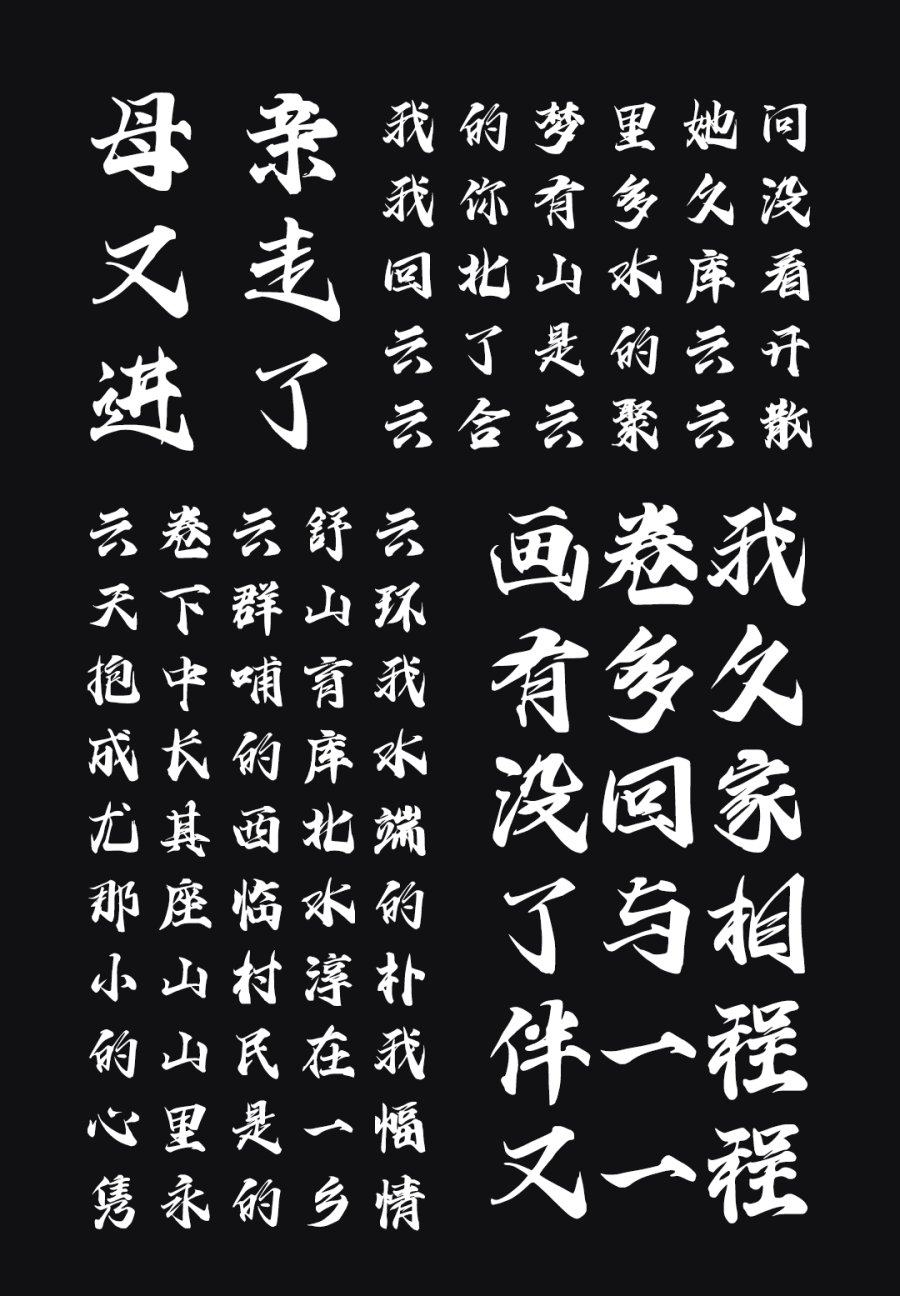 母亲
又走
进了
我的梦里她问
我你有多久没
回北山水库看
云了是的云开
云合云聚云散
云卷云舒云
天下群山环
抱中哺育我
成长的库水
尤其西北端
那座临水的
小山村淳朴
的山民在我
心里是一幅
隽永的乡情
画卷我
有多久
没回家
了与相
伴一程
又一程